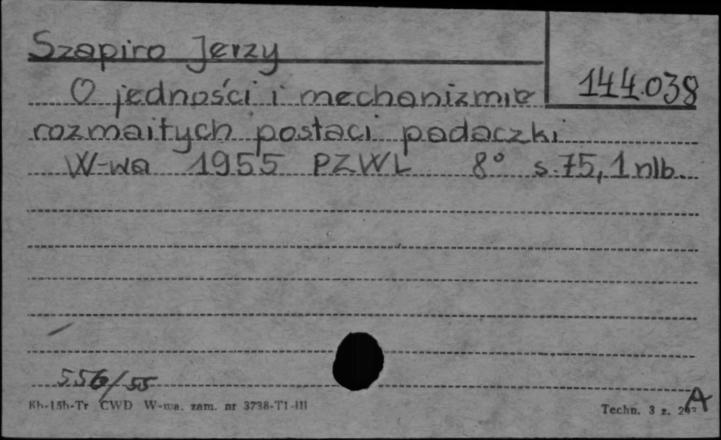 Szapiro Jerzy
144.038
O jedności i mechanizmie
rozmaitych postaci padaczki
W-wa 1955 PZWL 8° s. 75, 1 nlb.
556/55
Kb-15b-Tr CWD W-wa. zam. nr 3738-T1-III
Techn. 3 z.
A